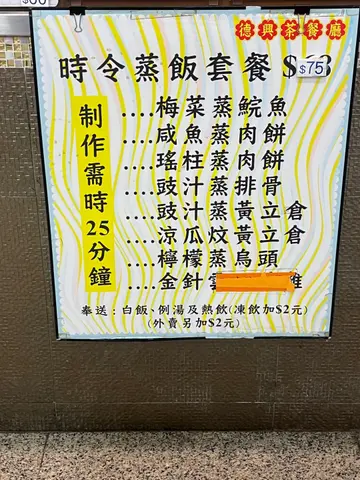 德興茶餐廳
時令蒸飯套餐 $75
制作需時25分鐘
....梅菜蒸鯇魚
....咸魚蒸肉餅
....瑤柱蒸肉餅
....豉汁蒸肉排骨
....豉汁蒸黃立倉
....涼瓜炆黃立倉
....檸檬蒸烏頭
....金針
奉送：白飯、例湯及熱飲(凍飲加$2元)
(外賣另加$2元)